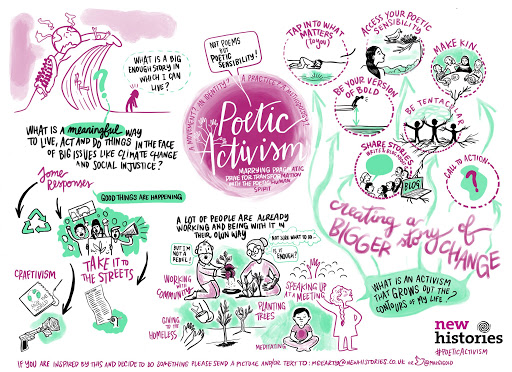 WHAT IS A BIG
ENOUGH STORY IN
WHICH I CAN
LIVE?
WHAT IS A meaningful WAY
TO LIVE, ACT AND DO THINGS IN THE FACE
OF BIG ISSUES LIKE CLIMATE CHANGE
AND SOCIAL INJUSTICE?
Some
Responses
GOOD THINGS ARE HAPPENING
TAKE IT TO
THE STREETS
CRAFTIVISM
NOT POEMS
BUT
POETIC
SENSIBILITY!
A MOVEMENT? AN IDENTITY? A PRACTICE?
Poetic
Activism
MARRYING PRAGMATIC
DRIVE FOR TRANSFORMATION
WITH THE POETIC HUMAN
SPIRIT
A LOT OF PEOPLE ARE ALREADY
WORKING AND BEING WITH IT IN
THEIR OWN WAY
BUT I'M
NOT A
REBEL!
NOT SURE WHAT TO DO
IS IT
ENOUGH?
WORKING
WITH
COMMUNITIES
GIVING
TO THE
HOMELESS
PLANTING
TREES
MEDITATING
SPEAKING UP
AT A MEETING
TAP INTO WHAT
MATTERS
(TO YOU)
ACCESS YOUR POETIC
SENSIBILITY
MAKE KIN
BE YOUR VERSION
OF BOLD
BE TENTACULAR
SHARE STORIES
BLOG
CALL TO ACTION
?
creating a
BIGGER story of
CHANGE
WHAT IS AN ACTIVISM
THAT GROWS OUT THE
CONTOURS OF MY LIFE?
new
histories
#POETICACTIVISM
IF YOU ARE INSPIRED BY THIS AND DECIDE TO DO SOMETHING PLEASE SEND A PICTURE AND/OR TEXT TO: